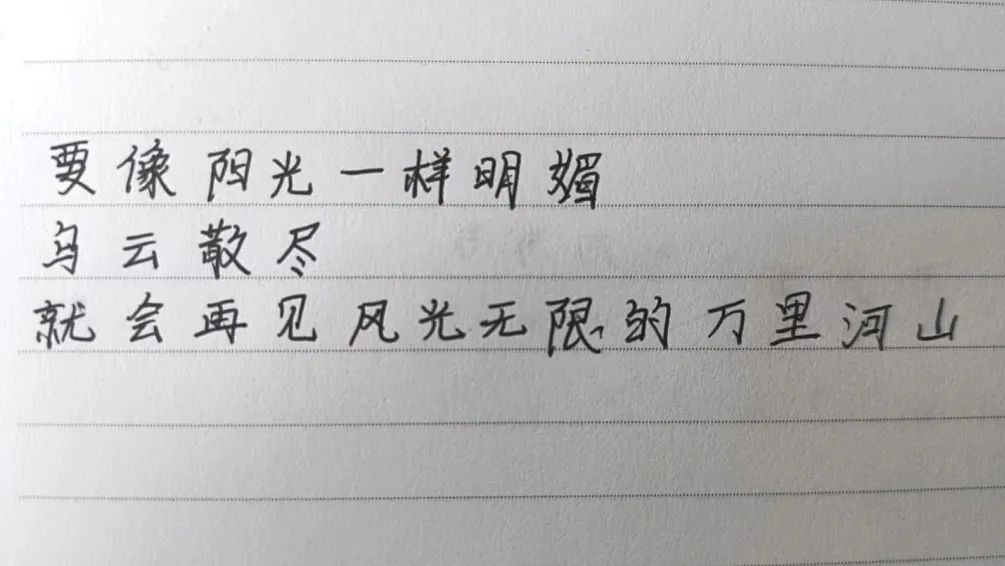 要像阳光一样明媚
乌云散尽
就会再见风光无限的万里河山